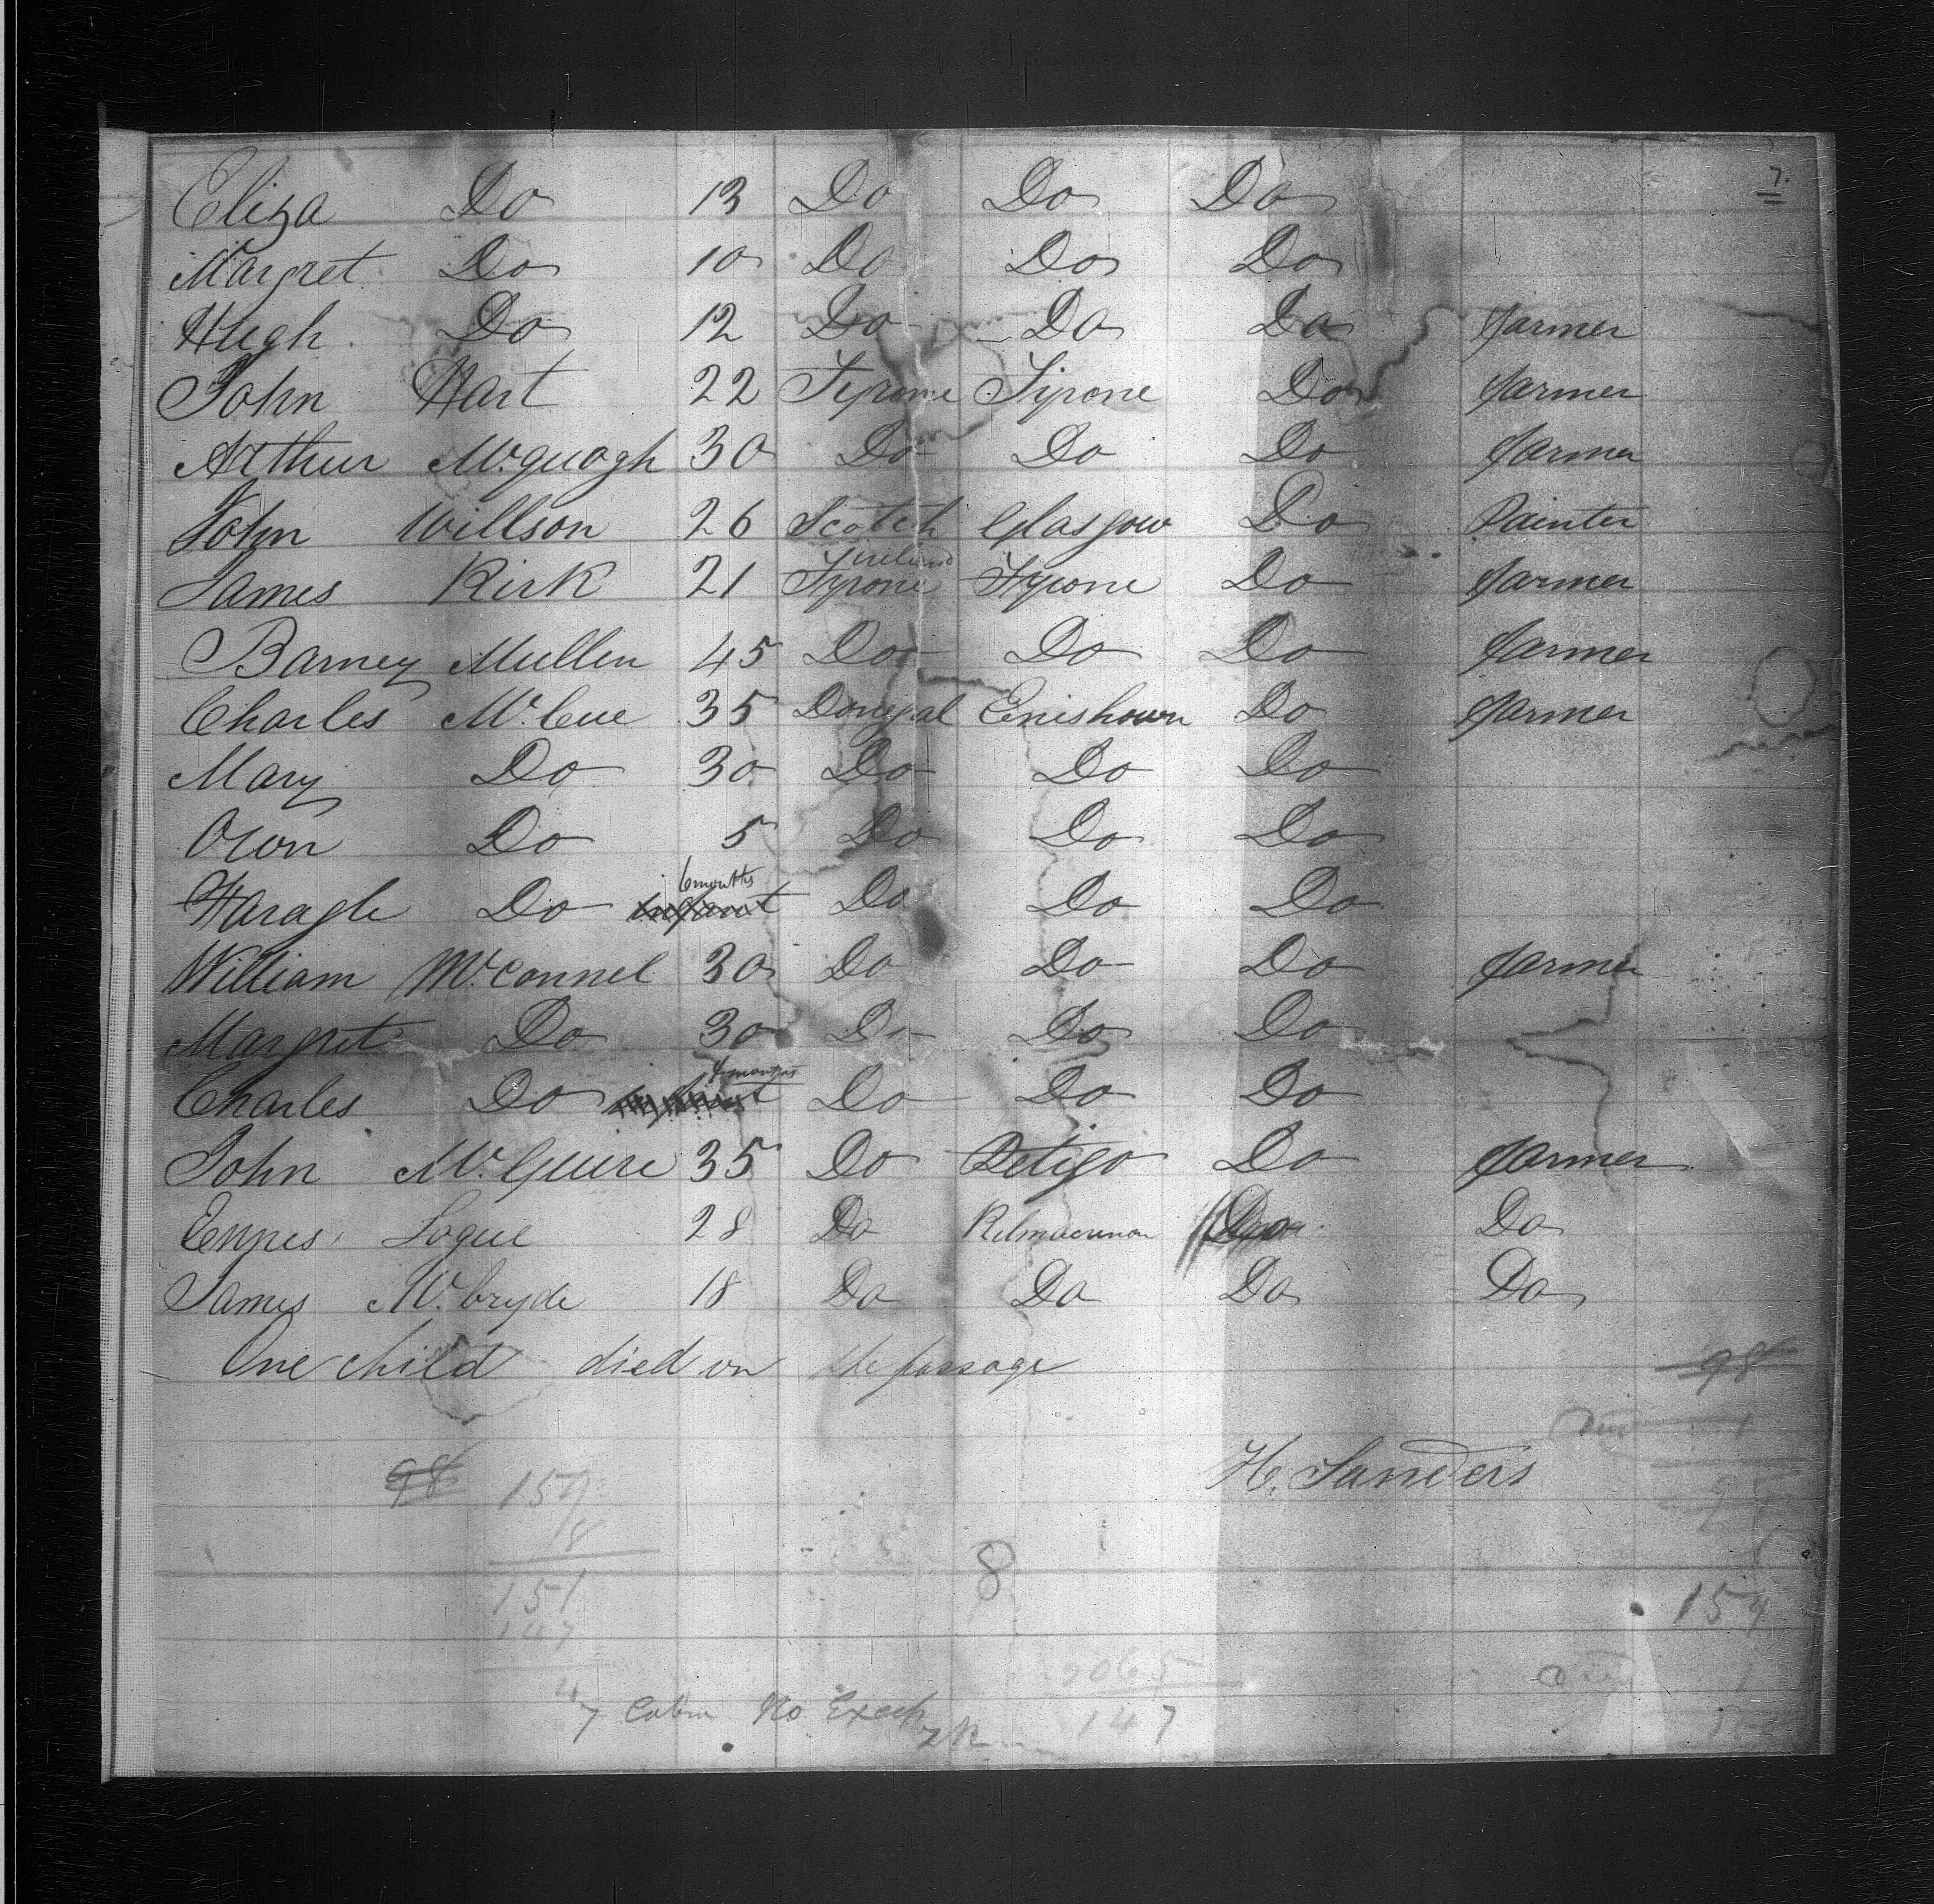 7.
Eliza Do 13 Do Do Do
Margret Do 10 Do Do Do
Hugh Do 12 Do Do Do farmer
John Hart 22 Tyrone Tyrone Do farmer
Arthur McQuogh 30 Do Do Do farmer
John Willson 26 Scotch Glasgow Do Painter
Ireland
James Kirk 21 Tyrone Tyrone Do farmer
Barney Mullen 45 Do Do Do farmer
Charles McCue 35 Donegal Enishown Do farmer
Mary Do 30 Do Do Do
Own Do 5 Do Do Do
6 months
Do infant Do Do Do
William McConnel 30 Do Do Do farmer
Margret Do 30 Do Do Do
months
Charles Do Do Do Do
John McGuire 35 Do Petigo Do farmer
Logue 28 Do Do Do
James McBryde 18 Do Do Do Do
One child died on the passage
98
1
H. Sanders
98 159
18
8
151
147 159
1
7 Cabin No
147